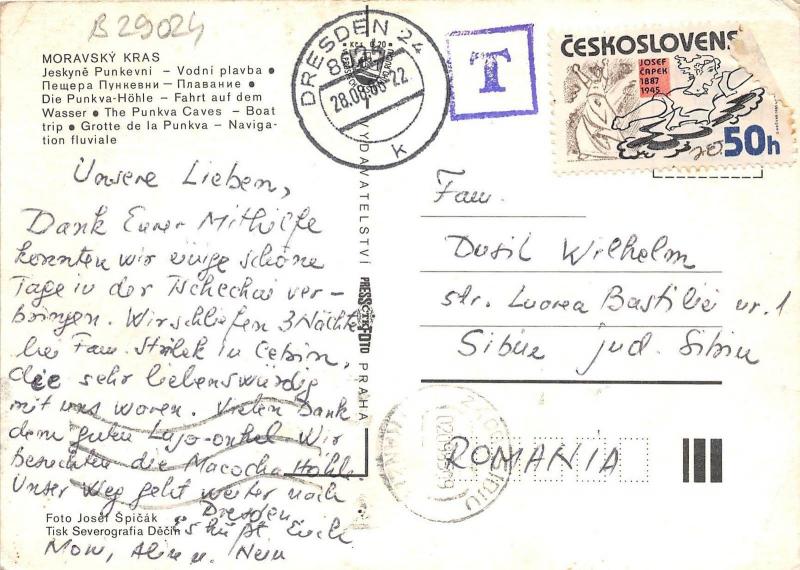 B 29024
MORAVSKÝ KRAS
Jeskyně Punkevní – Vodní plavba •
Пещера Пункевни – Плавание •
Die Punkva-Höhle – Fahrt auf dem
Wasser • The Punkva Caves – Boat
trip • Grotte de la Punkva – Naviga-
tion fluviale
Unsere Lieben,
Dank Eurer Mithilfe
konnten wir einige schöne
Tage in der Tschechai ver-
bringen. Wir schliefen 3 Nächte
bei Fam. in Cebin,
die sehr liebenswürdig
mit uns waren. Vielen Dank
dem guten Lajo-onkel Wir
besuchten die Macocha Höhle
Unser Weg geht weiter nach
Dresden
Foto Josef Špičák
Tisk Severografia Děčín
VYDAVATELSTVÍ PRESSFOTO PRAHA
DRESDEN 24
8027
28.08.
k
T
ČESKOSLOVENS
JOSEF
ČAPEK
1887
1945
50h
Fam.
Dosil Wilhelm
str. Luarea Bastiliei nr. 1
Sibiu jud. Sibiu
ROMANIA